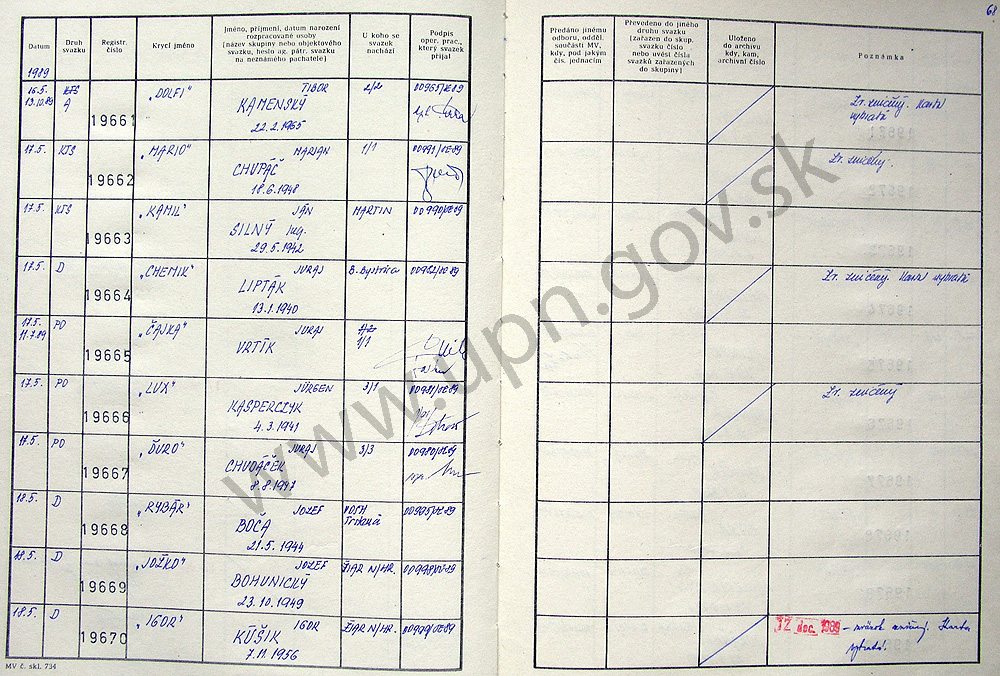 68
Datum
Druh svazku
Registr číslo
Krycí jméno
Jméno, příjmení, datum narození
rozpracované osoby
(název skupiny nebo objektového
svazku, heslo ag. pátr. svazku
na neznámého pachatele)
U koho se
svazek
nachází
Podpis
oper. prac.,
který svazek
přijal
Předáno jinému
odboru, odděl.
součásti MV,
kdy, pod jakým
čís. jednacím
Převedeno do jiného
druhu svazku
(zařazen do skup.
svazku číslo
nebo uvésti čísla
svazků zařazených
do skupiny)
Uloženo
do archivu
kdy, kam,
archivní číslo
Poznámka
1989
16.5. KTS 19661 „DOLFI“ TIBOR 2/2
13.10.89 A KAMENSKÝ
22.2.1965
Zv. zničený. Karta
vybratá
17.5. KTS 19662 „MARIO“ MARIÁN 1/1
CHUPÁČ
18.6.1948
Zv. zničený.
17.5. KTS 19663 „KAMIL“ JÁN MARTIN
SILNÝ Ing.
29.5.1942
17.5. D 19664 „CHEMIK“ JURAJ B. Bystrica
LIPTÁK
13.1.1940
Zv. zničený. Karta vybratá
17.5. PO 19665 „ČAJKA“ JURAJ
11.7.89 VRTÍK 1/1
17.5. PO 19666 „LUX“ JÜRGEN 3/1
KASPERCZYK
4.3.1941
Zv. zničený
17.5. PO 19667 „ĎURO“ JURAJ 3/3
CHUDÁČEK
8.8.1947
18.5. D 19668 „RYBÁR“ JOZEF
BOČA
21.5.1944
18.5. D 19669 „JOŽKO“ JOZEF ŽIAR N/HR.
BOHUNICKÝ
23.10.1949
18.5. D 19670 „IGOR“ IGOR ŽIAR N/HR.
KÚŠIK
7.11.1956
12. dec. 1989 – zväzok zničený. Karta
vybratá.
MV č. skl. 734
www.upn.gov.sk